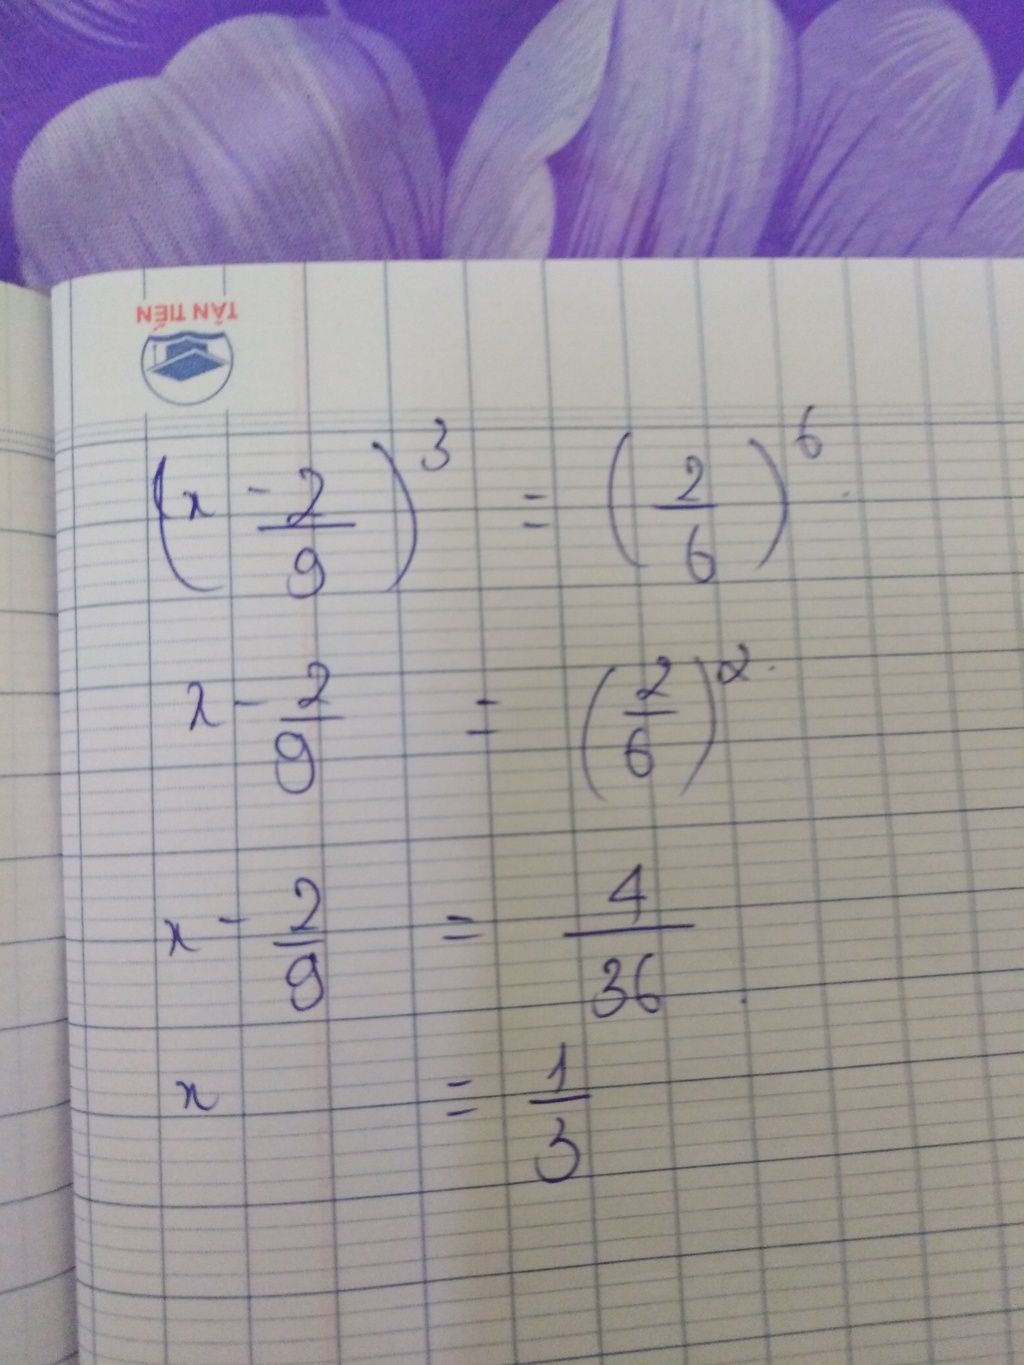 TÂN TIẾN
(x - 2/9)^3 = (2/6)^6
x - 2/9 = (2/6)^2
x - 2/9 = 4/36
x = 1/3